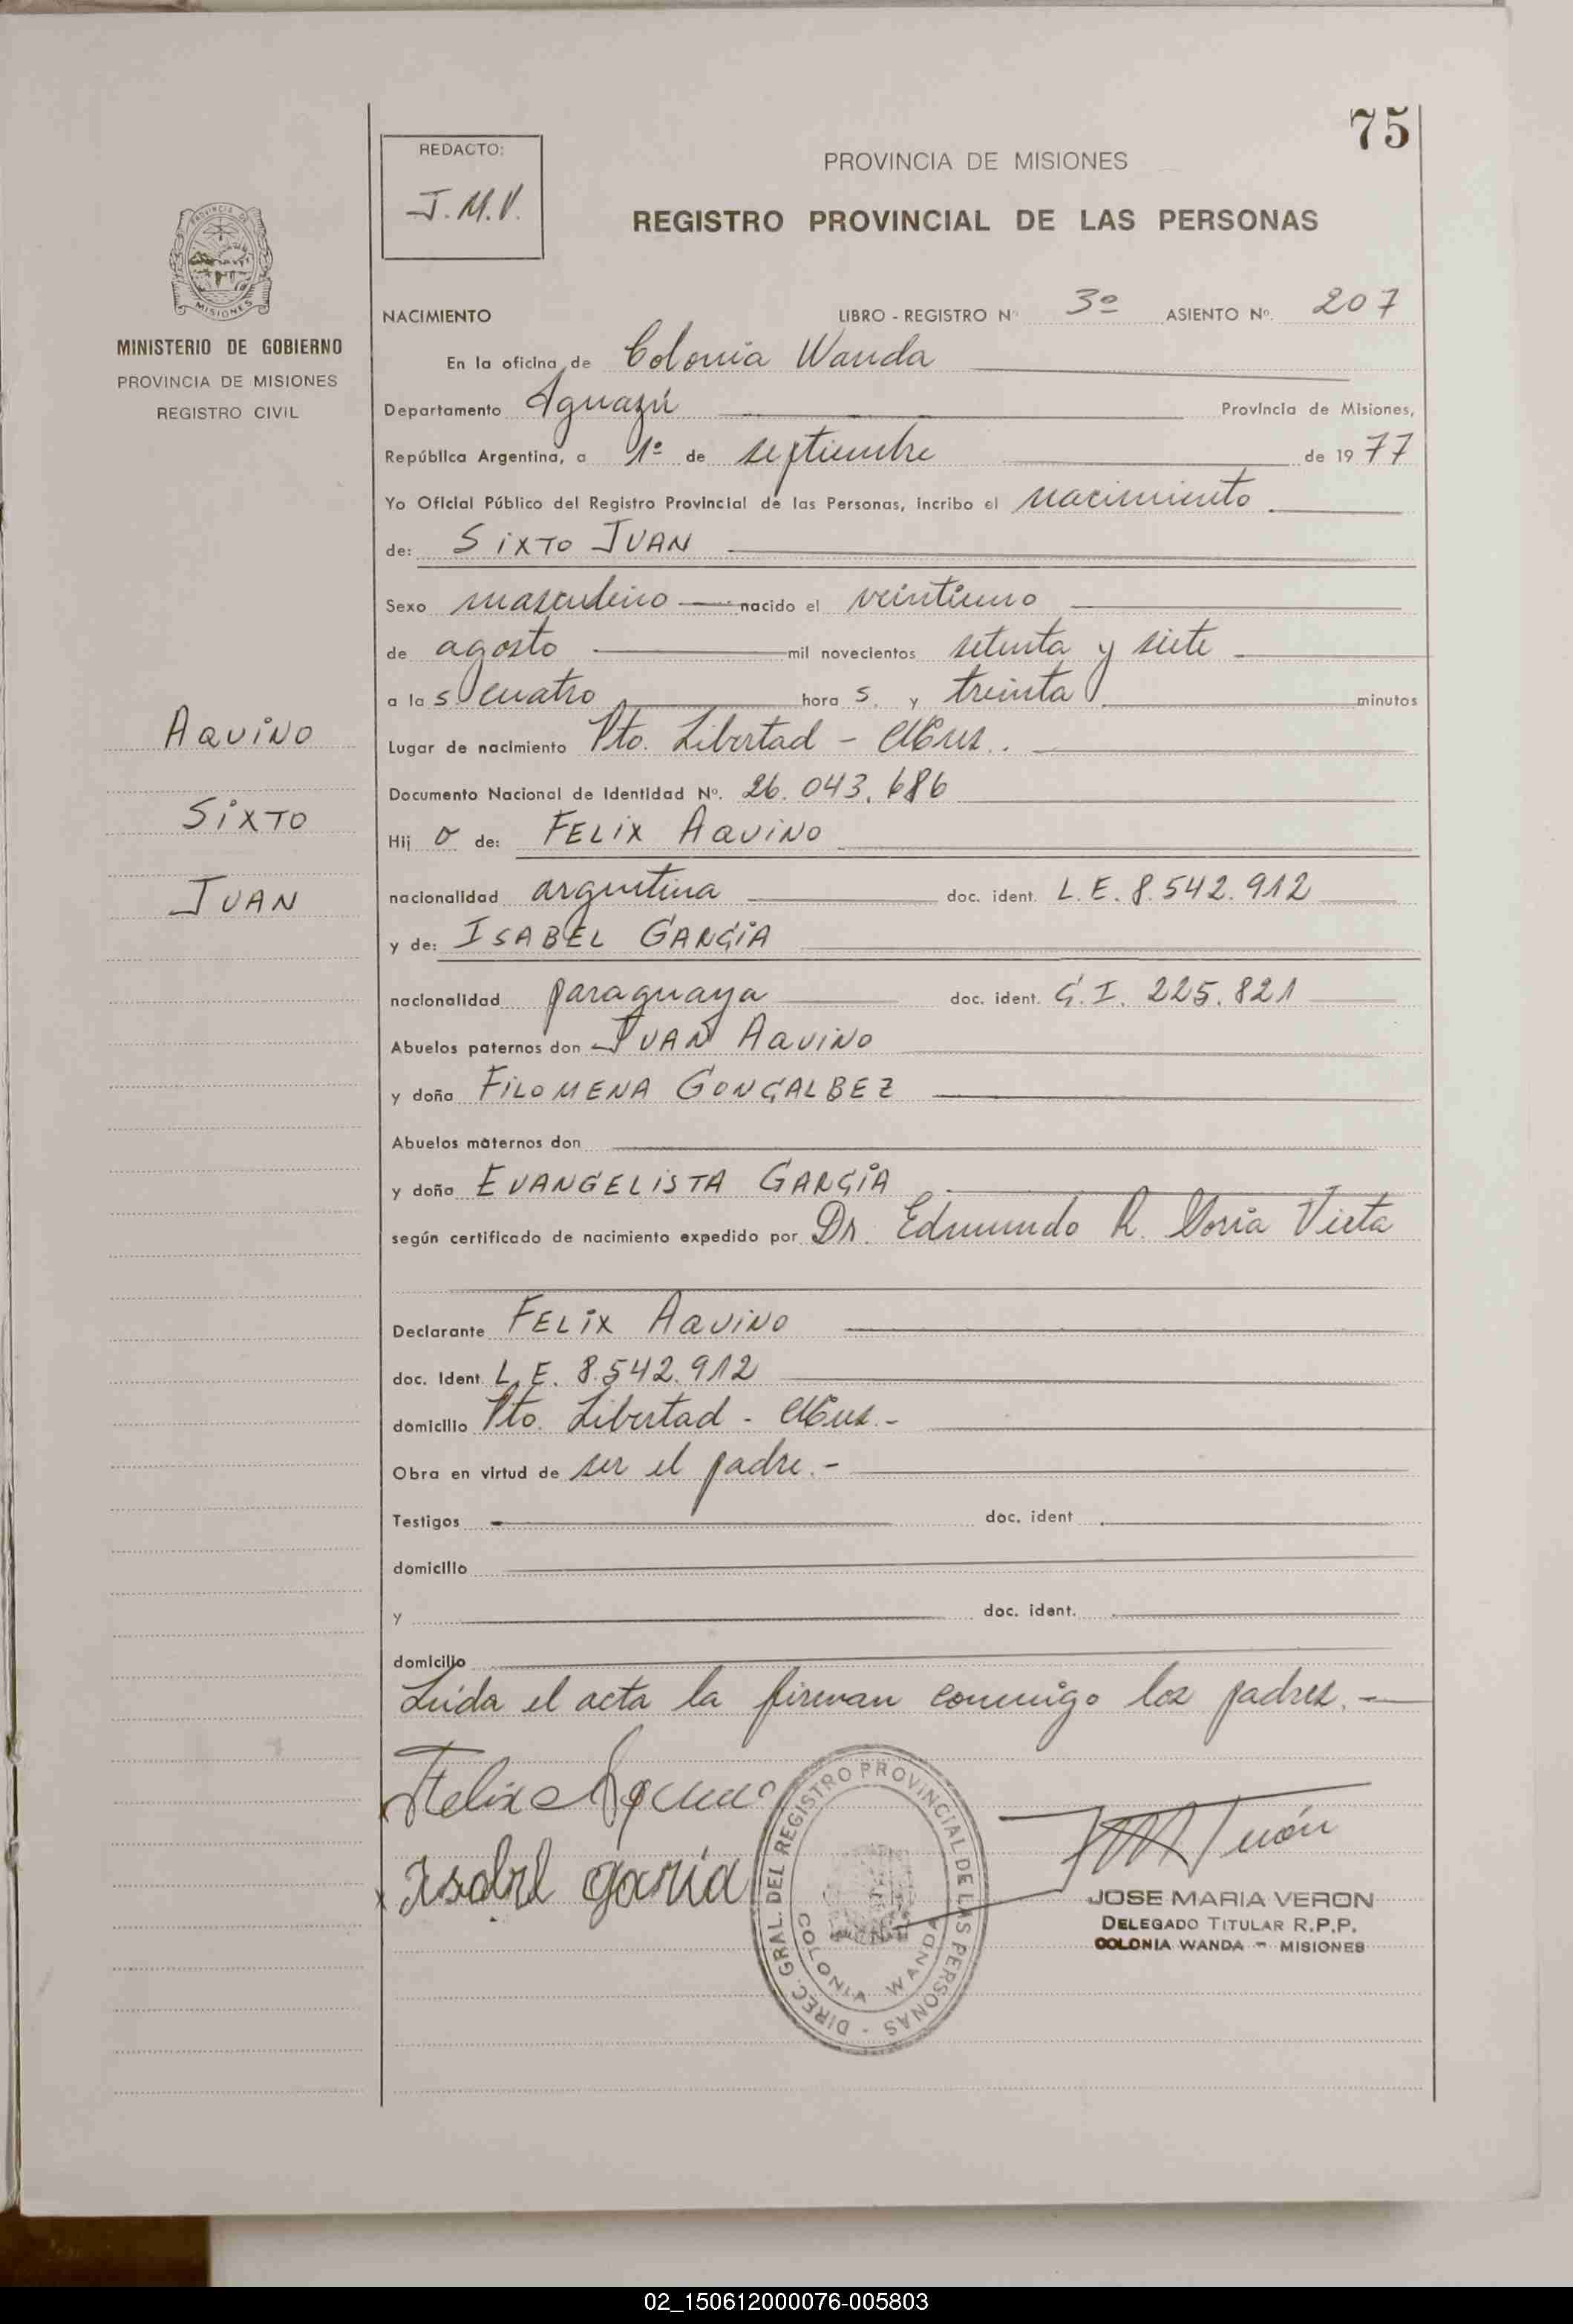 75
REDACTO:
J.M.V.
PROVINCIA DE MISIONES
REGISTRO PROVINCIAL DE LAS PERSONAS
PROVINCIA DE
MISIONES
MINISTERIO DE GOBIERNO
PROVINCIA DE MISIONES
REGISTRO CIVIL
NACIMIENTO LIBRO - REGISTRO Nº 3º ASIENTO Nº. 207
En la oficina de Colonia Wanda
Departamento Iguazú Provincia de Misiones,
República Argentina, a 1º de septiembre de 1977
Yo Oficial Público del Registro Provincial de las Personas, incribo el nacimiento
de: SIXTO JUAN
Sexo masculino nacido el veintiuno
de agosto mil novecientos setenta y siete
a la s cuatro hora s. y treinta minutos
Lugar de nacimiento Pto. Libertad - Mnes.
Documento Nacional de Identidad Nº. 26.043.686
Hij o de: FELIX AQUINO
nacionalidad argentina doc. ident. L.E. 8.542.912
y de: ISABEL GARCIA
nacionalidad paraguaya doc. ident. C.I. 225.821
Abuelos paternos don JUAN AQUINO
y doña FILOMENA GONÇALBEZ
Abuelos maternos don
y doña EVANGELISTA GARCIA
según certificado de nacimiento expedido por Dr. Edmundo R. Doria Vieta
Declarante FELIX AQUINO
doc. Ident L.E. 8.542.912
domicilio Pto. Libertad - Mnes.-
Obra en virtud de ser el padre.-
Testigos doc. ident
domicilio
y doc. ident.
domicilio
Leída el acta la firman conmigo los padres.-
AQUINO
SIXTO
JUAN
Felix Aquino
x Isabel garia
DIREC. GRAL. DEL REGISTRO PROVINCIAL DE LAS PERSONAS -
COLONIA WANDA
JOSE MARIA VERON
DELEGADO TITULAR R.P.P.
COLONIA WANDA - MISIONES
02_150612000076-005803